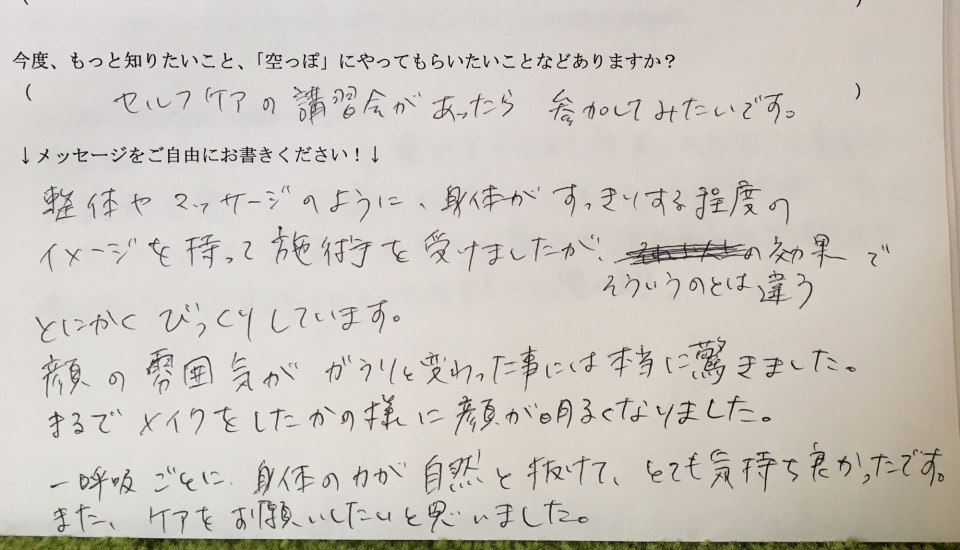 (                    )
今度、もっと知りたいこと、「空っぽ」にやってもらいたいことなどありますか？
(   セルフケアの講習会があったら 参加してみたいです。   )
↓メッセージをご自由にお書きください！↓
整体やマッサージのように、身体がすっきりする程度の
イメージを持って施術を受けましたが、の効果で
そういうのとは違う
とにかくびっくりしています。
顔の雰囲気ががらりと変わった事には本当に驚きました。
まるでメイクをしたかの様に顔が明るくなりました。
一呼吸ごとに、身体の力が自然と抜けて、とても気持ち良かったです。
また、ケアをお願いしたいと思いました。